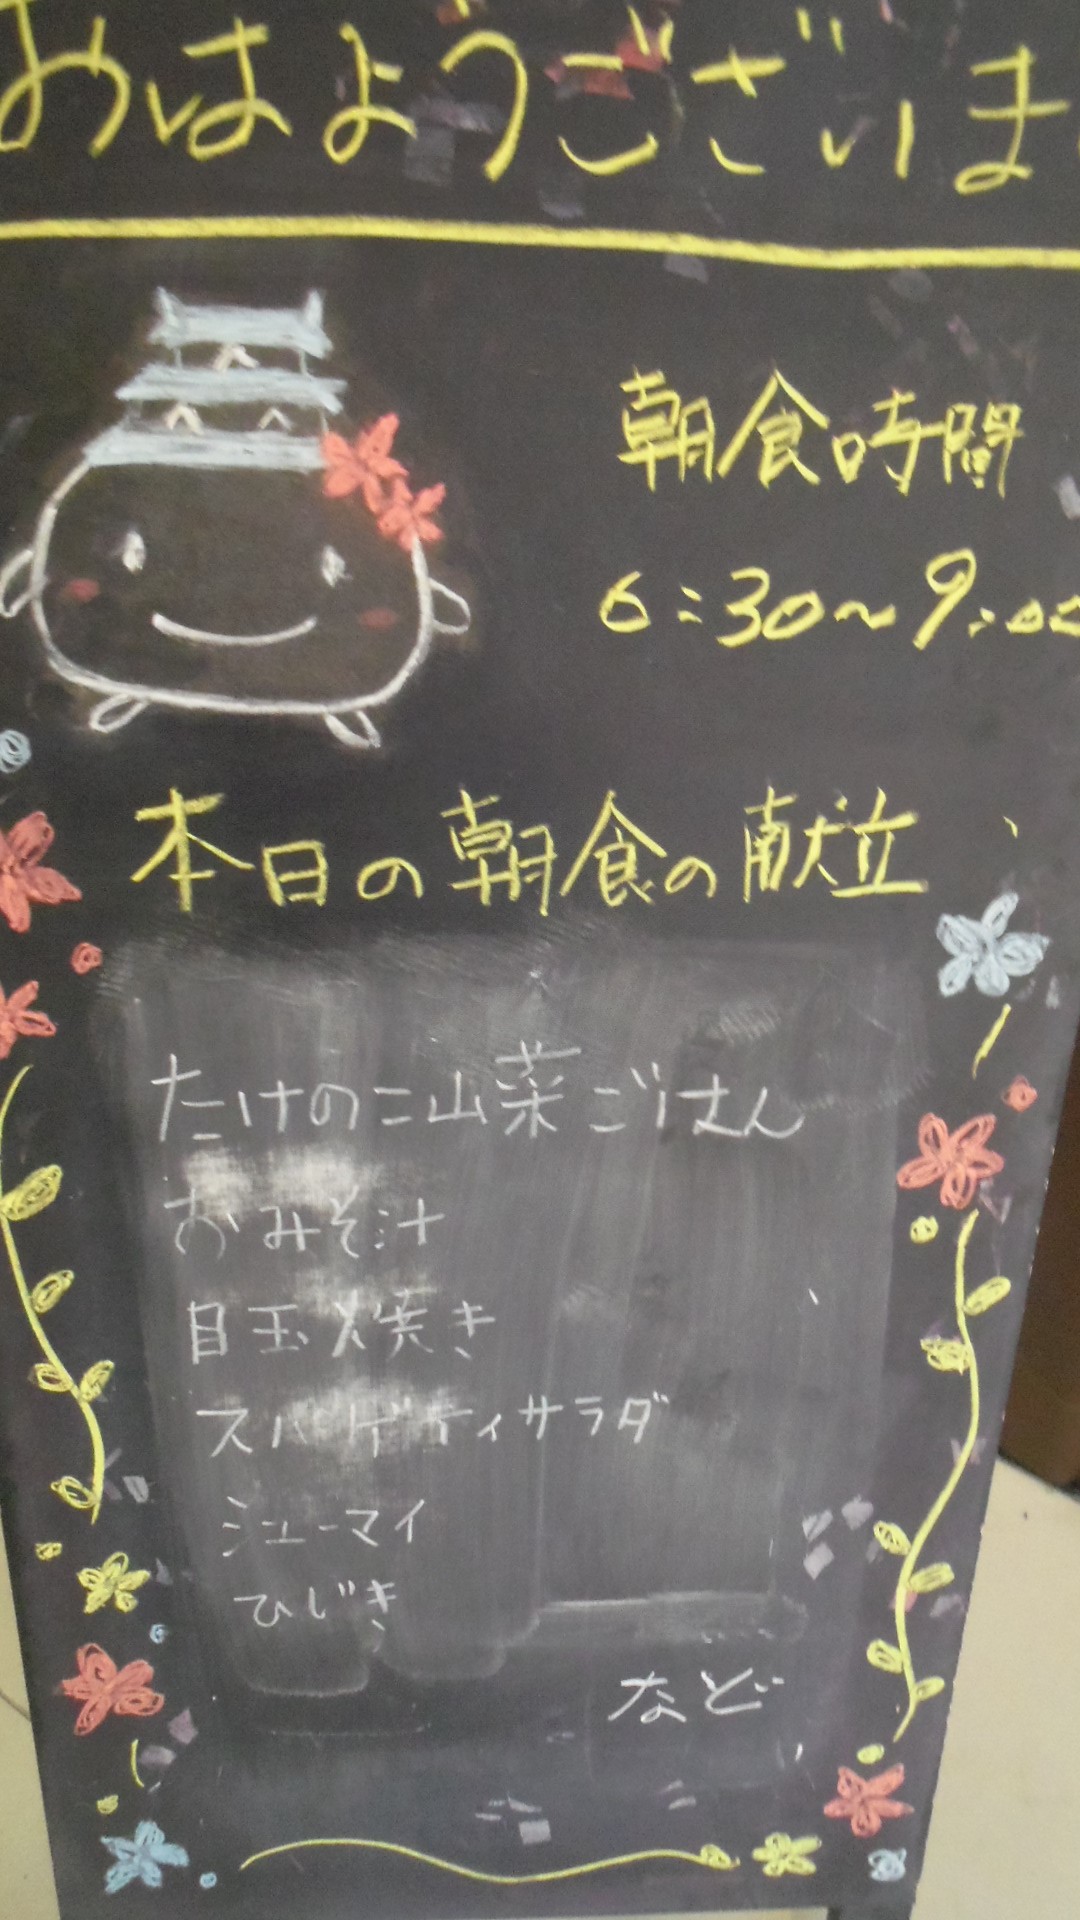 おはようございま
朝食時間
6:30～9:00
本日の朝食の献立
たけのこ山菜ごはん
おみそ汁
目玉焼き
スパゲティサラダ
シューマイ
ひじき
など